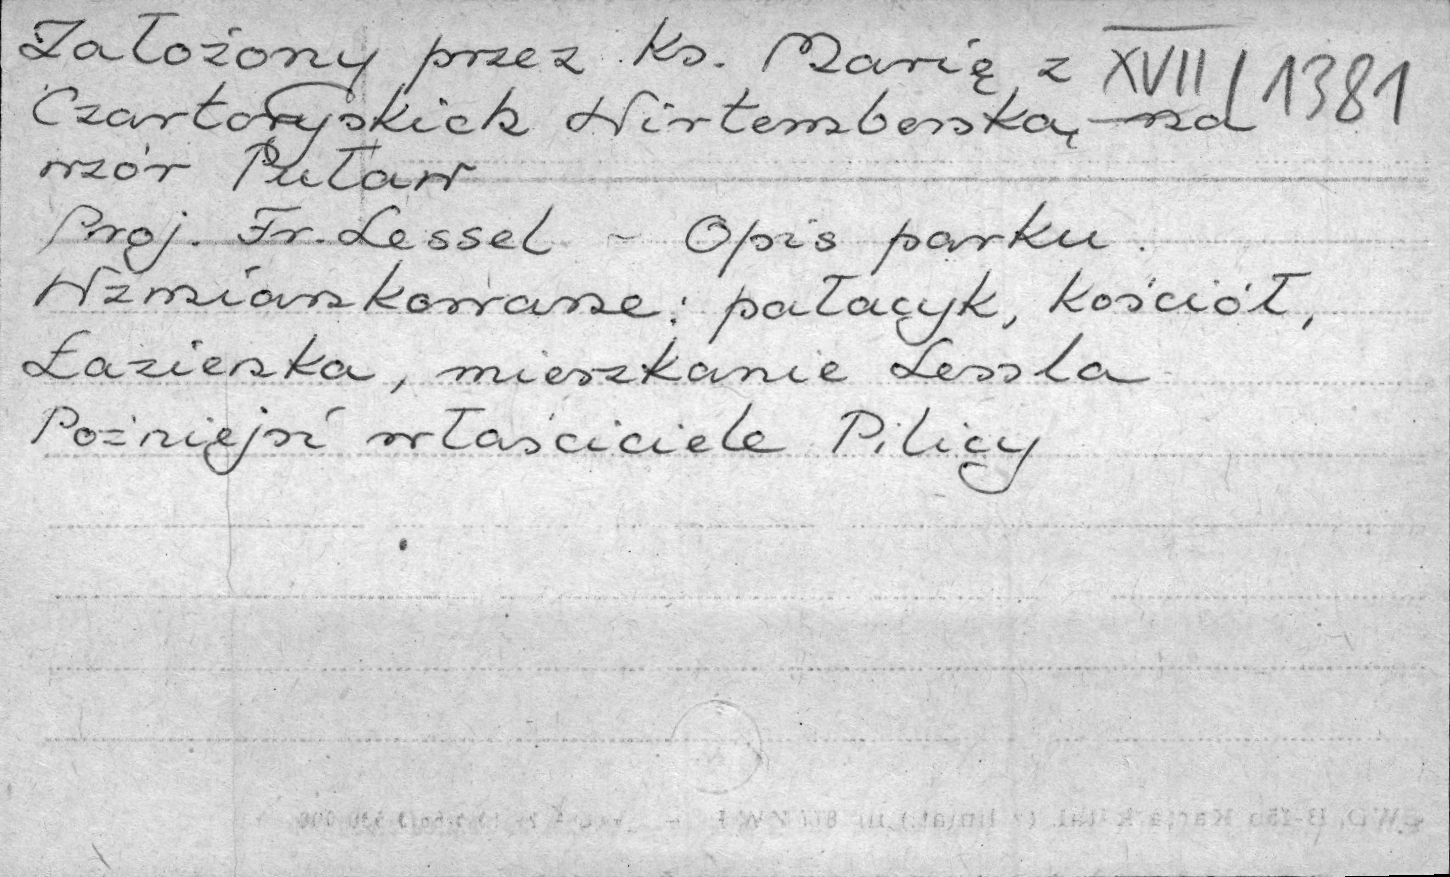 Założony przez Ks. Marię z XVII/1381
Czartoryskich Wirtemberską na
wzór Puław
Proj. Fr. Lessel – Opis parku.
Wzmiankowane: pałacyk, kościół,
Łazienka, mieszkanie Lessla
Poźniejsi właściciele Pilicy